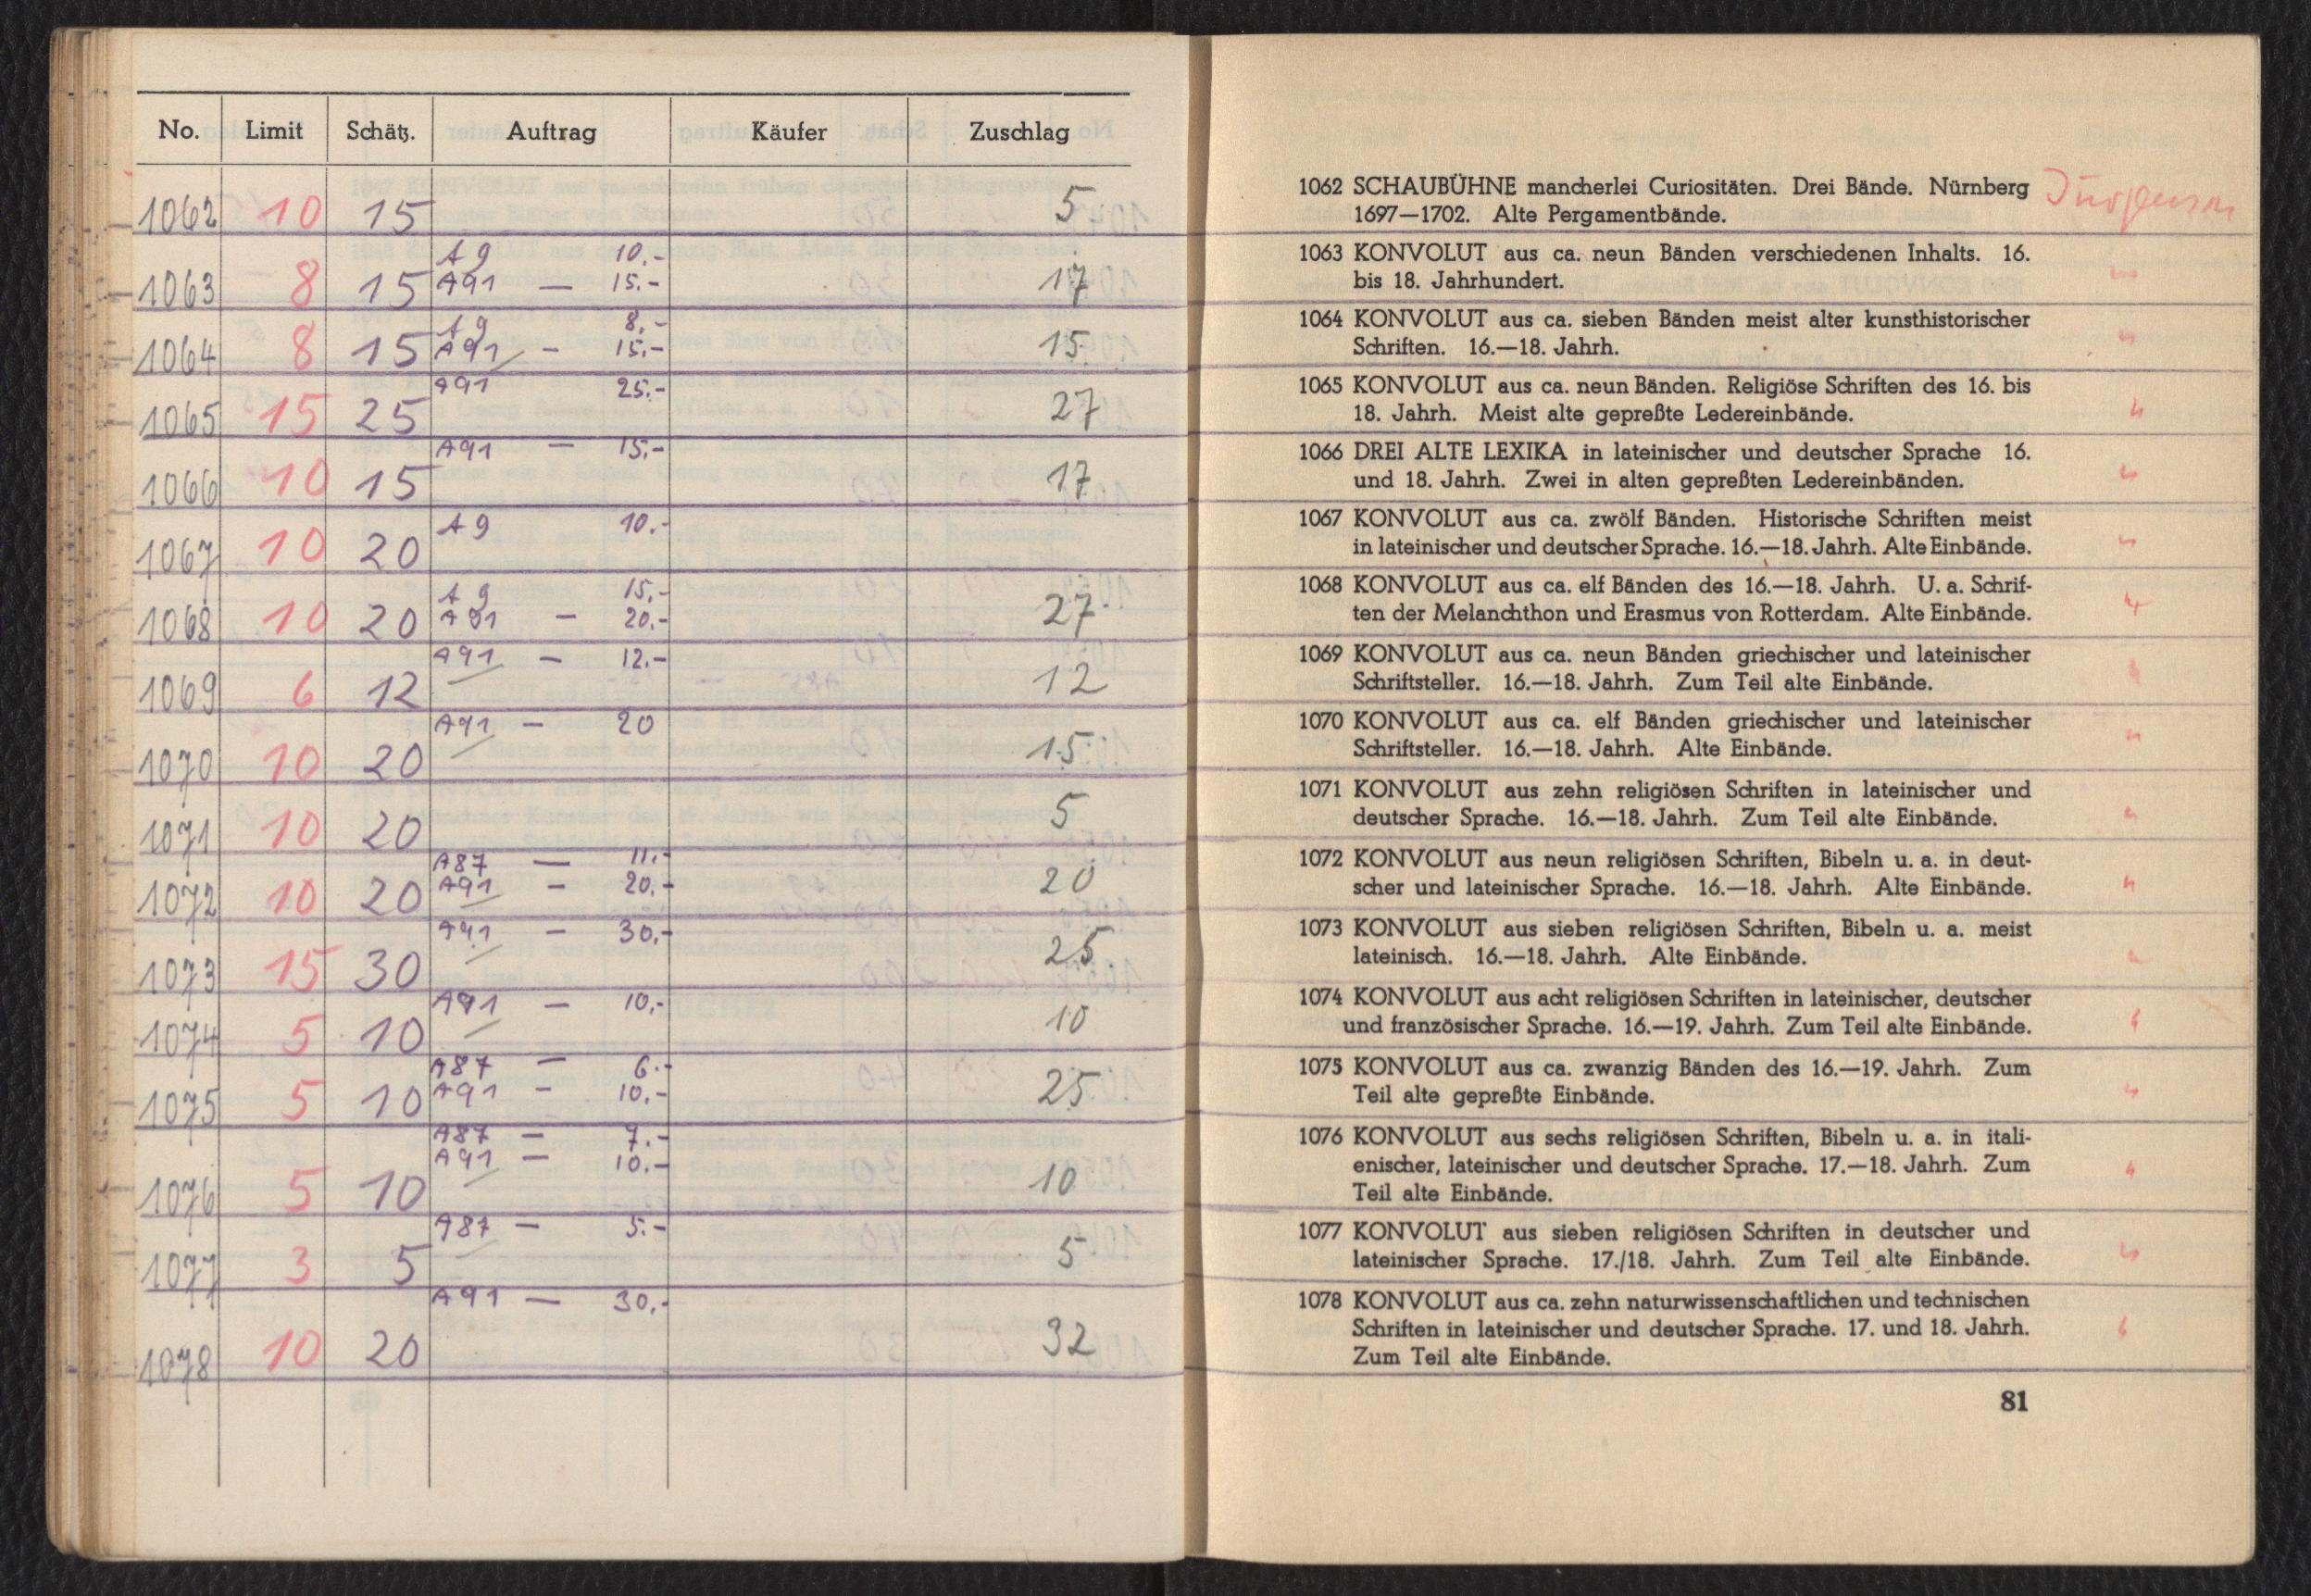 No. Limit Schätz. Auftrag Käufer Zuschlag
1062 10 15 5
A 9 10.-
1063 8 15 A91 — 15.- 17
A 9 8.-
1064 8 15 A91 - 15.- 15
A91 25.-
1065 15 25 27
A91 — 15.-
1066 10 15 17
A 9 10.-
1067 10 20
A 9 15.-
1068 10 20 A91 - 20.- 27
A91 — 12.-
1069 6 12 12
A91 — 20
1070 10 20 15
1071 10 20 5
A87 — 11.-
1072 10 20 A91 - 20.- 20
A91 - 30.-
1073 15 30 25
A91 — 10.-
1074 5 10 10
A87 — 6.-
1075 5 10 A91 - 10.- 25
A87 — 7.-
A91 — 10.-
1076 5 10 10
A87 — 5.-
1077 3 5 5
A91 — 30.-
1078 10 20 32
1062 SCHAUBÜHNE mancherlei Curiositäten. Drei Bände. Nürnberg
1697—1702. Alte Pergamentbände.
1063 KONVOLUT aus ca. neun Bänden verschiedenen Inhalts. 16.
bis 18. Jahrhundert.
1064 KONVOLUT aus ca. sieben Bänden meist alter kunsthistorischer
Schriften. 16.—18. Jahrh.
1065 KONVOLUT aus ca. neun Bänden. Religiöse Schriften des 16. bis
18. Jahrh. Meist alte gepreßte Ledereinbände.
1066 DREI ALTE LEXIKA in lateinischer und deutscher Sprache 16.
und 18. Jahrh. Zwei in alten gepreßten Ledereinbänden.
1067 KONVOLUT aus ca. zwölf Bänden. Historische Schriften meist
in lateinischer und deutscher Sprache. 16.—18. Jahrh. Alte Einbände.
1068 KONVOLUT aus ca. elf Bänden des 16.—18. Jahrh. U. a. Schrif-
ten der Melanchthon und Erasmus von Rotterdam. Alte Einbände.
1069 KONVOLUT aus ca. neun Bänden griechischer und lateinischer
Schriftsteller. 16.—18. Jahrh. Zum Teil alte Einbände.
1070 KONVOLUT aus ca. elf Bänden griechischer und lateinischer
Schriftsteller. 16.—18. Jahrh. Alte Einbände.
1071 KONVOLUT aus zehn religiösen Schriften in lateinischer und
deutscher Sprache. 16.—18. Jahrh. Zum Teil alte Einbände.
1072 KONVOLUT aus neun religiösen Schriften, Bibeln u. a. in deut-
scher und lateinischer Sprache. 16.—18. Jahrh. Alte Einbände.
1073 KONVOLUT aus sieben religiösen Schriften, Bibeln u. a. meist
lateinisch. 16.—18. Jahrh. Alte Einbände.
1074 KONVOLUT aus acht religiösen Schriften in lateinischer, deutscher
und französischer Sprache. 16.—19. Jahrh. Zum Teil alte Einbände.
1075 KONVOLUT aus ca. zwanzig Bänden des 16.—19. Jahrh. Zum
Teil alte gepreßte Einbände.
1076 KONVOLUT aus sechs religiösen Schriften, Bibeln u. a. in itali-
enischer, lateinischer und deutscher Sprache. 17.—18. Jahrh. Zum
Teil alte Einbände.
1077 KONVOLUT aus sieben religiösen Schriften in deutscher und
lateinischer Sprache. 17./18. Jahrh. Zum Teil alte Einbände.
1078 KONVOLUT aus ca. zehn naturwissenschaftlichen und technischen
Schriften in lateinischer und deutscher Sprache. 17. und 18. Jahrh.
Zum Teil alte Einbände.
81